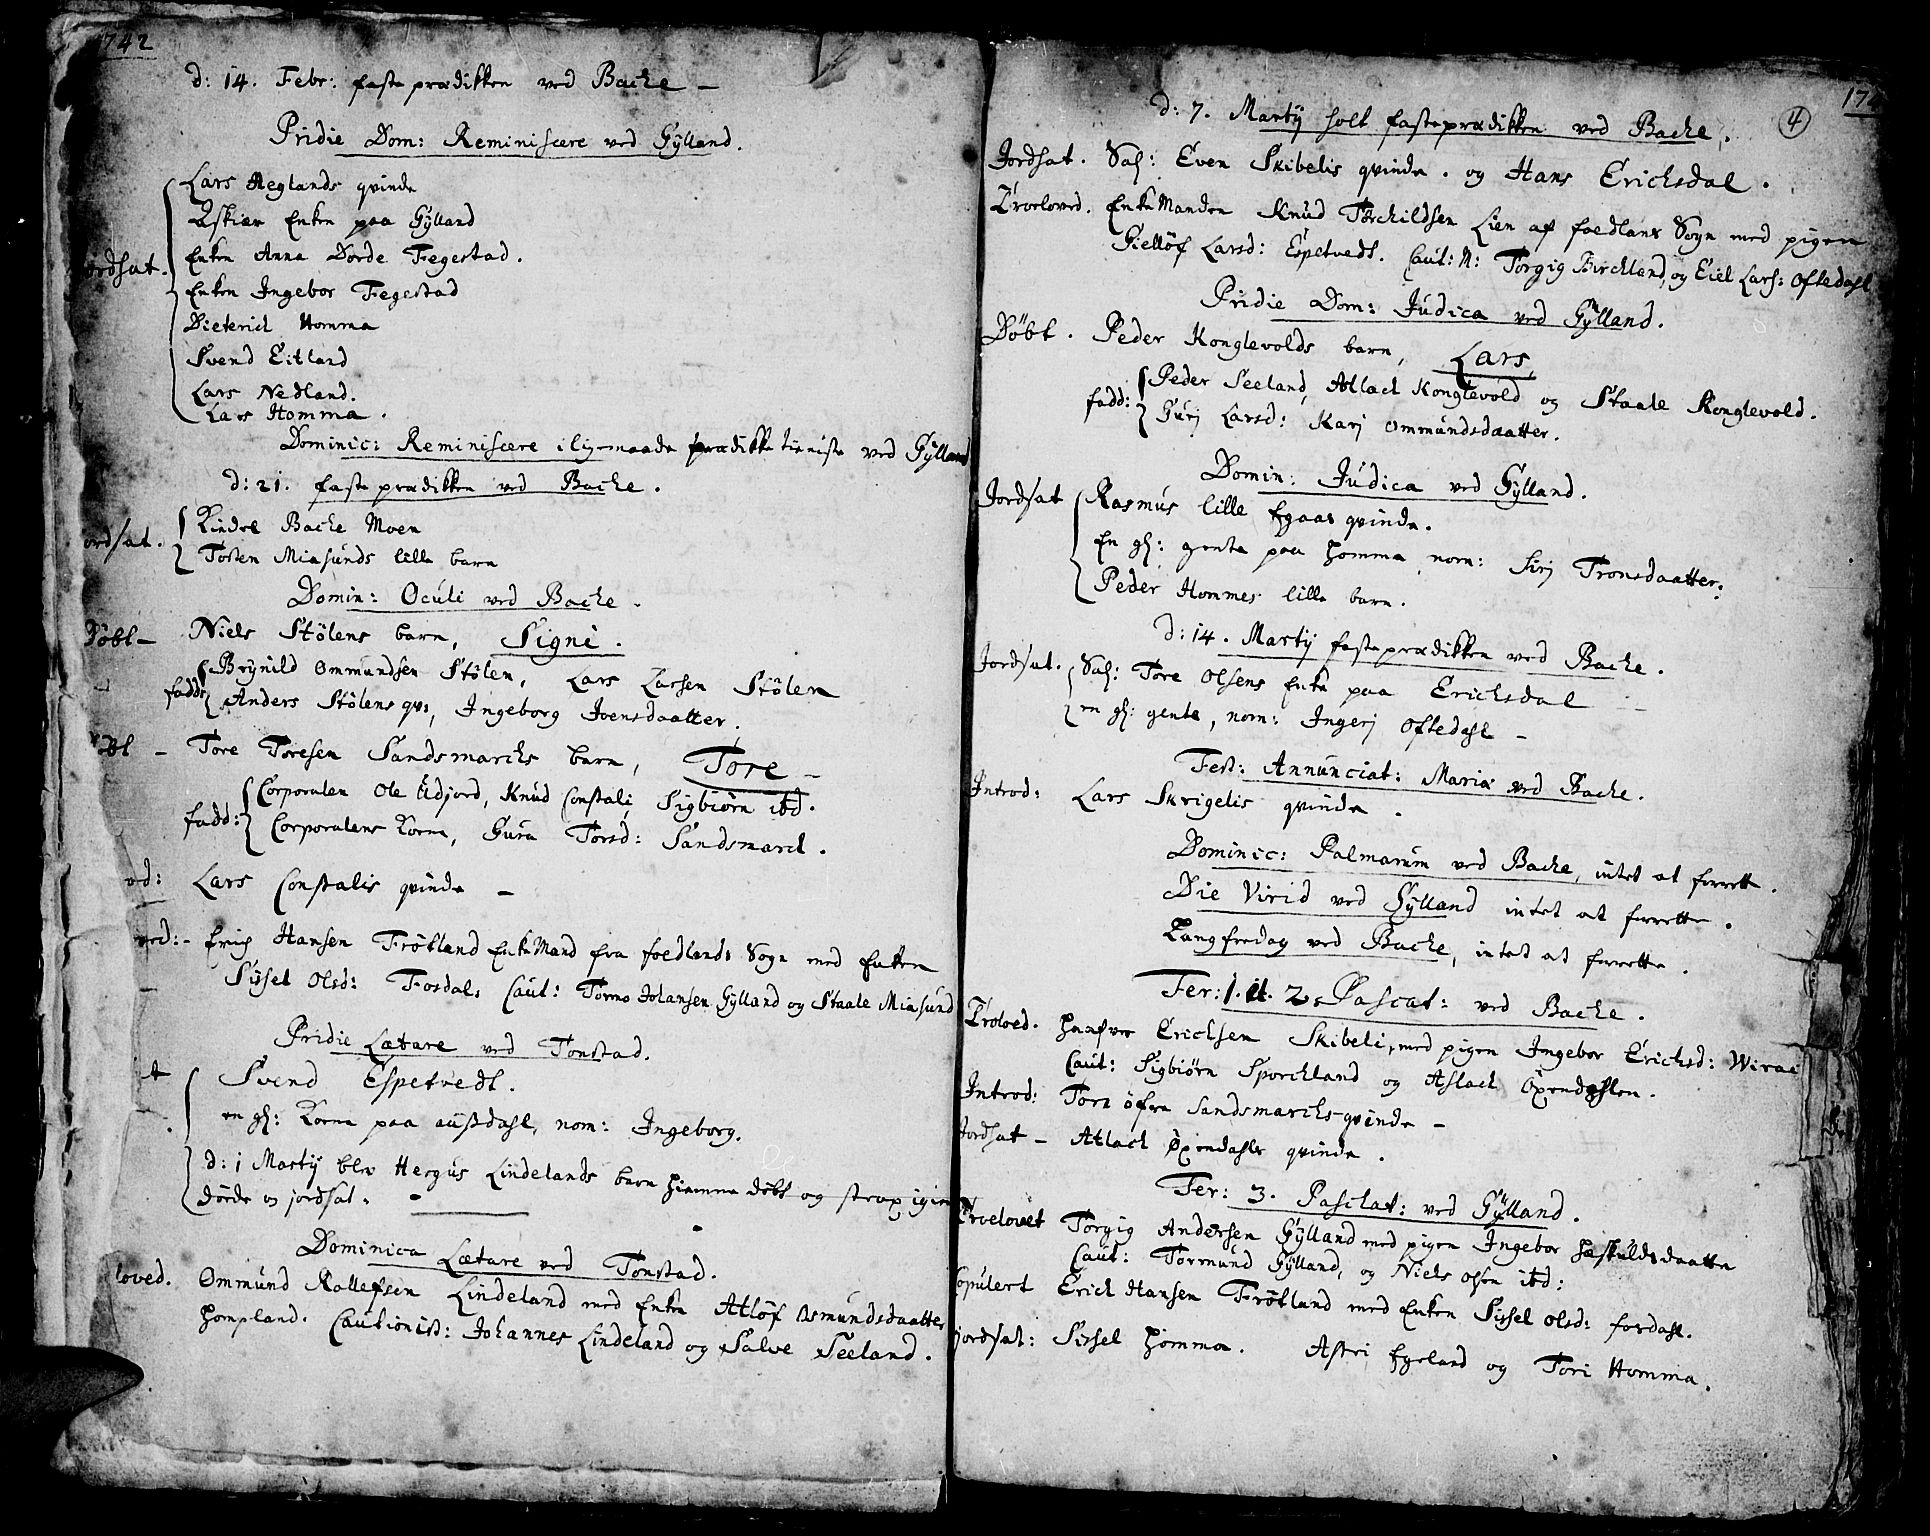 1742
d: 14. Febr: faste prædikken ved Bache –
Pridie Dom: Reminiscere ved Gylland.
Lars Reglands qvinde
Enken paa Gylland
Enken Anna Dorde Fegestad.
ordsat.
Enken Ingebor Fegestad
Dieterich Homma
Svend Eitland
Lars Nedland.
Lars Homma.
Dominic: Reminiscere iligemaade prædikke tieniste ved Gylland
d: 21. faste prædikken ved Bache.
ordsat.
Bache Moen
Tosten Miasunds lille barn
Domin: Oculi ved Bache.
Döbt – Niels Stölens barn, Signe.
fadd: Brynild Ommundsen Stölen, Lars Larsen Stölen
Anders Stölens qv:, Ingeborg Ivensdaatter.
öbt – Tore Toresen Sandsmarchs barn, Tore –
fadd: Corporalen Ole Udjord, Knud Constali, Sigbiörn ibd.
Corporalens Kone, Gura Torsd: Sandsmarck.
od: Lars Constalis qvinde –
ved: – Erich Hansen Frötland Enke Mand fra foedlands Sogn med Enken
Sissel Olsd: Fosdal, Caut: Tormo Johansen Gylland og Staale Miasund
Pridie Lætare ved Tonstad.
Svend Espetvedt.
en gl: Kone paa ausdahl, nom: Ingeborg.
d: 1 Martij blev Hergus Lindelands barn hiemme döbt og strax igien
döde og jordsat.
Dominica Lætare ved Tonstad.
loved. Ommund Rallefsen Lindeland med Enken Atlöf Asmundsdaatter
Hompland. Cautionist: Johannes Lindeland og Salve Seeland.
174
4
d: 7. Martij holt fasteprædikken ved Bache.
Jordsat. Sal: Even Skibelis qvinde. og Hans Erichsdal.
Troeloved. Enke Manden Knud Torchildsen Lien af foedlans Sogn med pigen
Giellöf Larsd: Espetvedt. Caut: N: Torgig Birchland, og Eiel Lars: Oftedahl
Pridie Dom: Judica ved Gylland.
Döbt. Peder Konglevolds barn, Lars,
fadd: Peder Seeland, Atlach Konglevold og Staale Konglevold.
Guri Larsd: Karj Ommundsdaatter.
Domin: Judica ved Gylland.
Jordsat Rasmus lille Egaas qvinde.
En gl: gente paa Homma nom: Sirj Tronsdaatter.
Peder Hommes lille barn.
d: 14. Martij fasteprædikken ved Bache.
Jordsat. Sal: Tore Olsens Enke paa Erichsdal
en gl: gente, nom: Ingerj Oftedahl –
Fest: Annunciat: Mariæ ved Bache.
Introd: Lars Skrigelis qvinde.
Dominic: Palmarum ved Bache, intet at forrett.
Die Virid ved Gylland intet at forrette.
Langfredag ved Bache, intet at forrette.
Fer: 1. et. 2. Pascat: ved Bache.
Troloved. Erichsen Skibeli, med pigen Ingebor Erichsd: Wirae
Caut: Sigbiörn Sporchland og Aslach Öxendahlen.
Introd: Tore öfre Sandsmarchs qvinde –
Jordsat – Atlach Öxendahls qvinde.
Fer: 3. Paschat: ved Gylland.
Troelovet Torgig Andersen Gylland med pigen Ingebor Haskuldsdaatter
Caut: Tormund Gylland, og Niels Olsen ibd:
Copulert Erich Hansen Frötland med Enken Sissel Olsd: Fosdahl.
jordsat: Sissel Homma. Astri Egeland og Tori Homma.